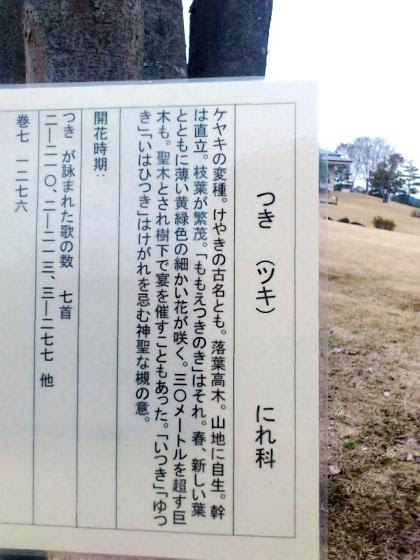 つき（ツキ）　にれ科
ケヤキの変種。けやきの古名とも。落葉高木。山地に自生。幹
は直立。枝葉が繁茂。「ももえつきのき」はそれ。春、新しい葉
とともに薄い黄緑色の細かい花が咲く。三〇メートルを超す巨
木も。聖木とされ樹下で宴を催すこともあった。「いつき」「ゆつ
き」「いはひつき」はけがれを忌む神聖な槻の意。
開花時期：
つき が詠まれた歌の数　七首
二―二一〇、二―二一三、三―二七七　他
巻七　一二七六